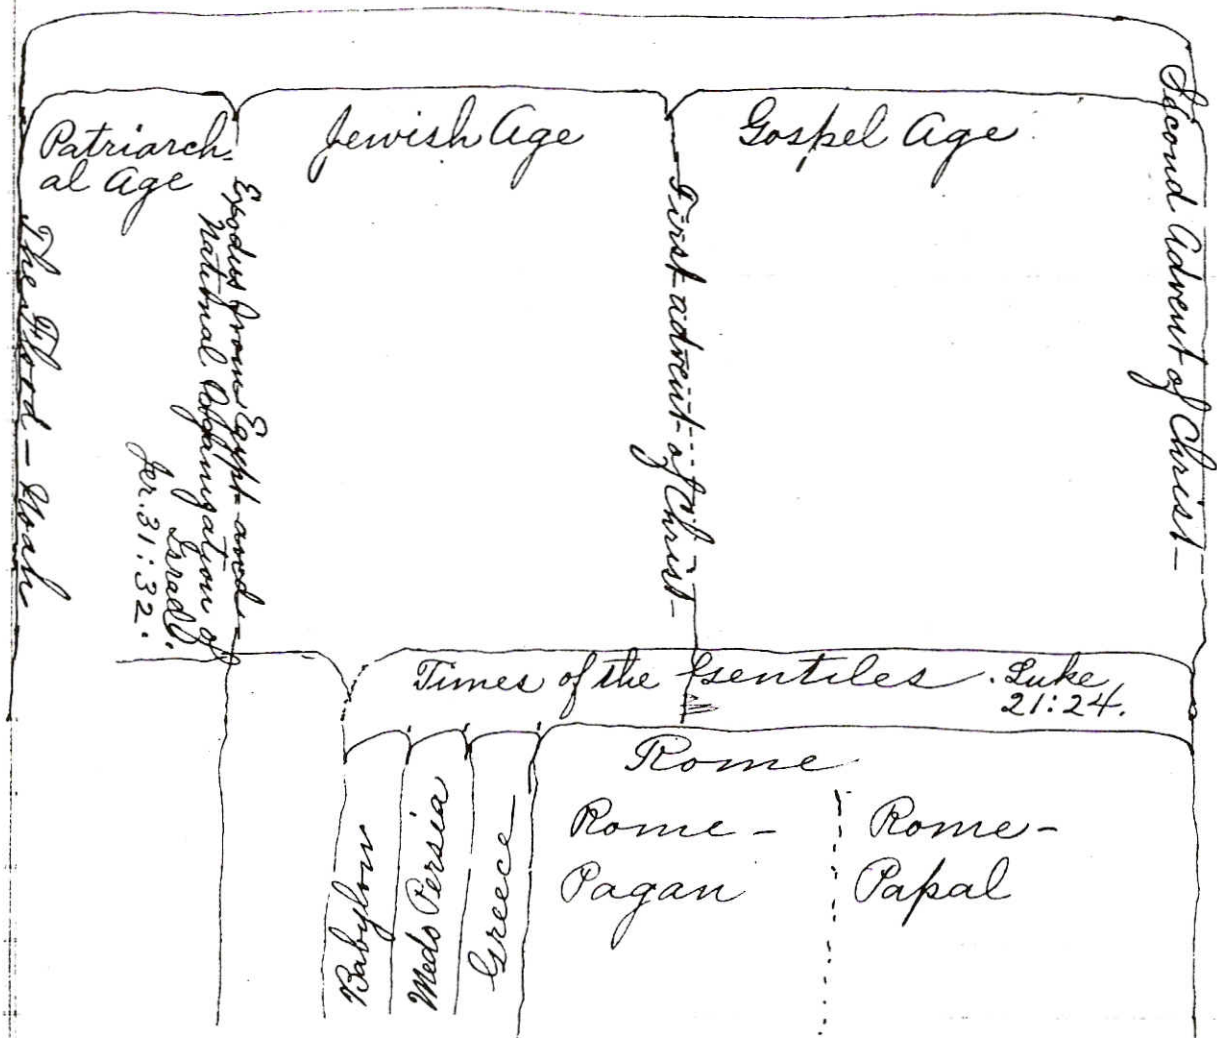 Patriarch-
al Age
Jewish Age
Gospel Age
The Flood – Noah
Exodus from Egypt and
National Organization of
Israel.
Jer. 31:32.
First advent of Christ–
Second Advent of Christ–
Times of the Gentiles. Luke
21:24.
Babylon
Medo Persia
Greece
Rome
Rome-
Pagan
Rome-
Papal